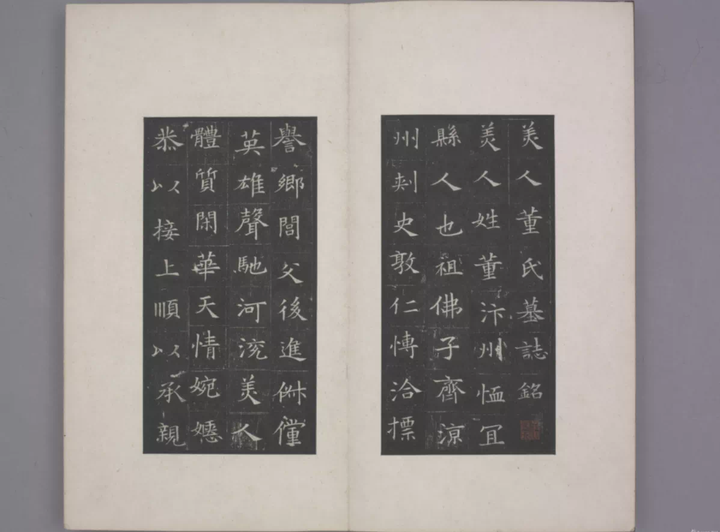 美人董氏墓誌銘
美人姓董汴州恤宜
縣人也祖佛子齊涼
州刾史敦仁愽洽摽
譽鄉閭父後進俶儻
英雄聲馳河渷美人
體質閑華天情婉嫕
恭以接上順以承親